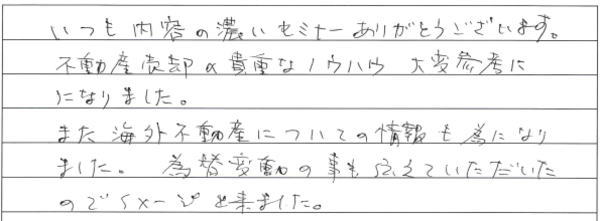 いつも内容の濃いセミナーありがとうございます。
不動産売却の貴重なノウハウ 大変参考に
になりました。
また海外不動産についての情報も為になり
ました。為替変動の事も伝えていただいた
のでイメージ出来ました。